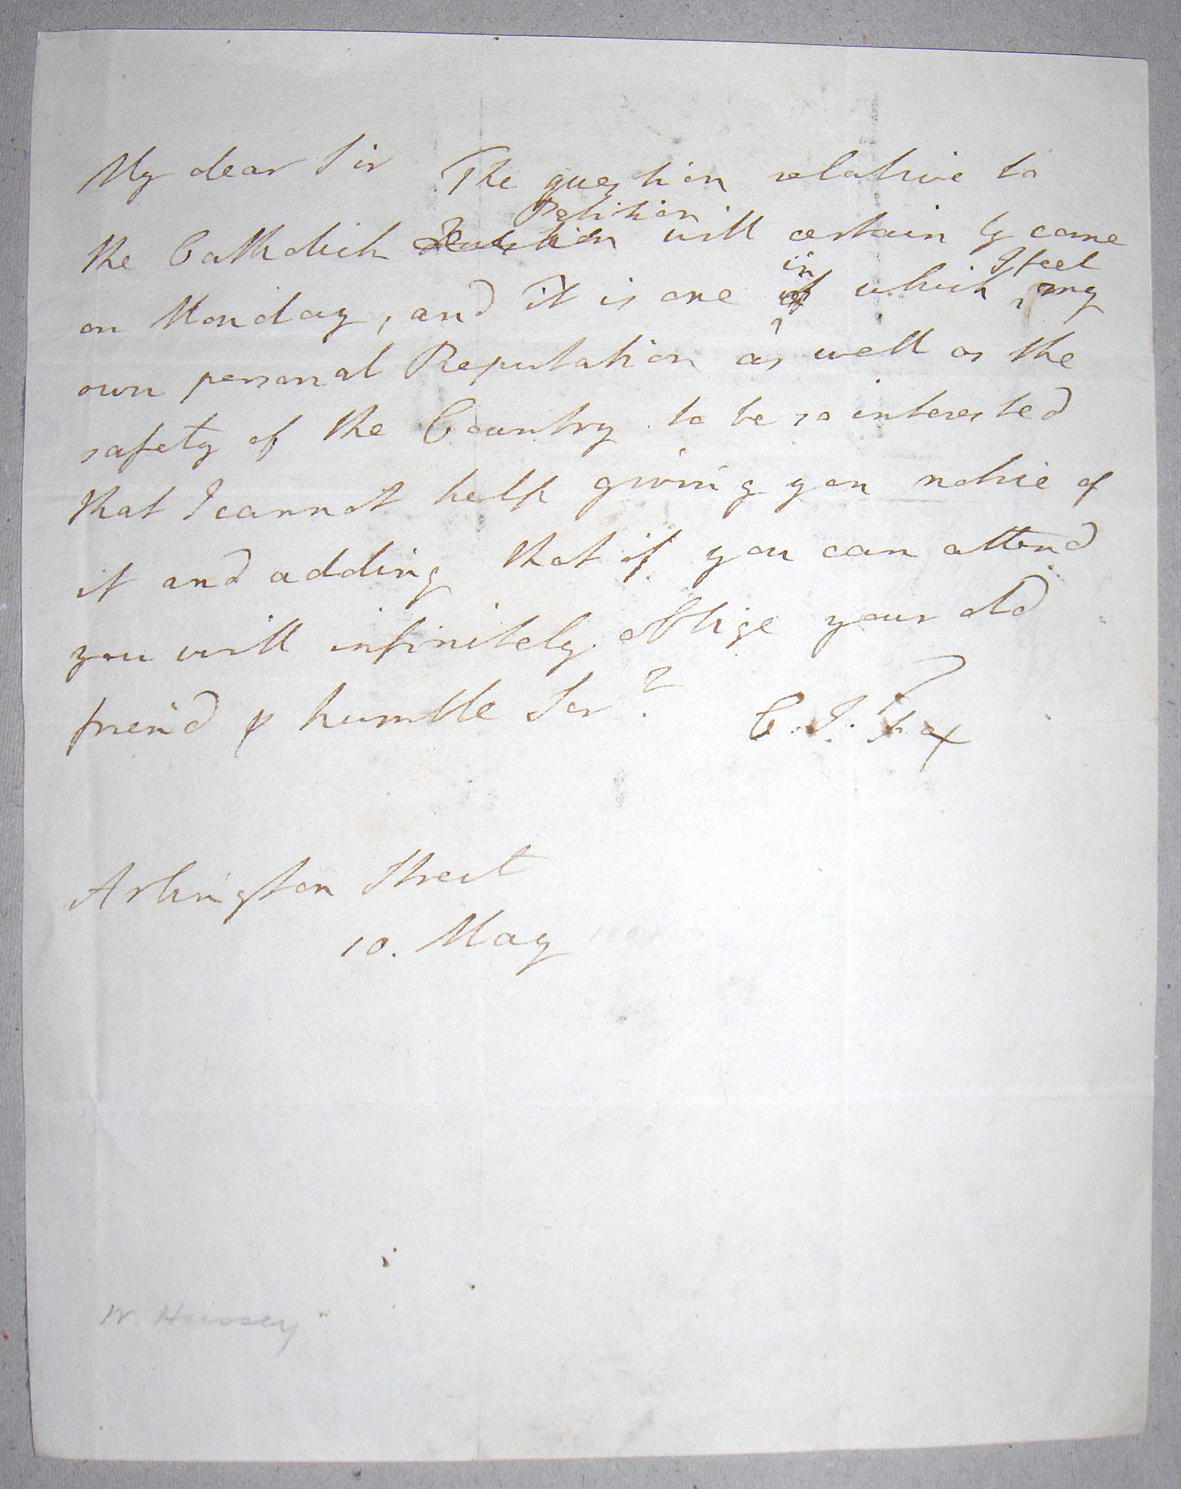 My dear Sir The question relative to
Petition
the Catholick will certainly come
in I feel
on Monday, and it is one of which my
own personal Reputation as well as the
safety of the Country to be so interested
that I cannot help giving you notice of
it and adding that if you can attend
you will infinitely oblige your old
friend & humble Ser.t
C. J. Fox
Arlington Street
10. May
W. Hussey